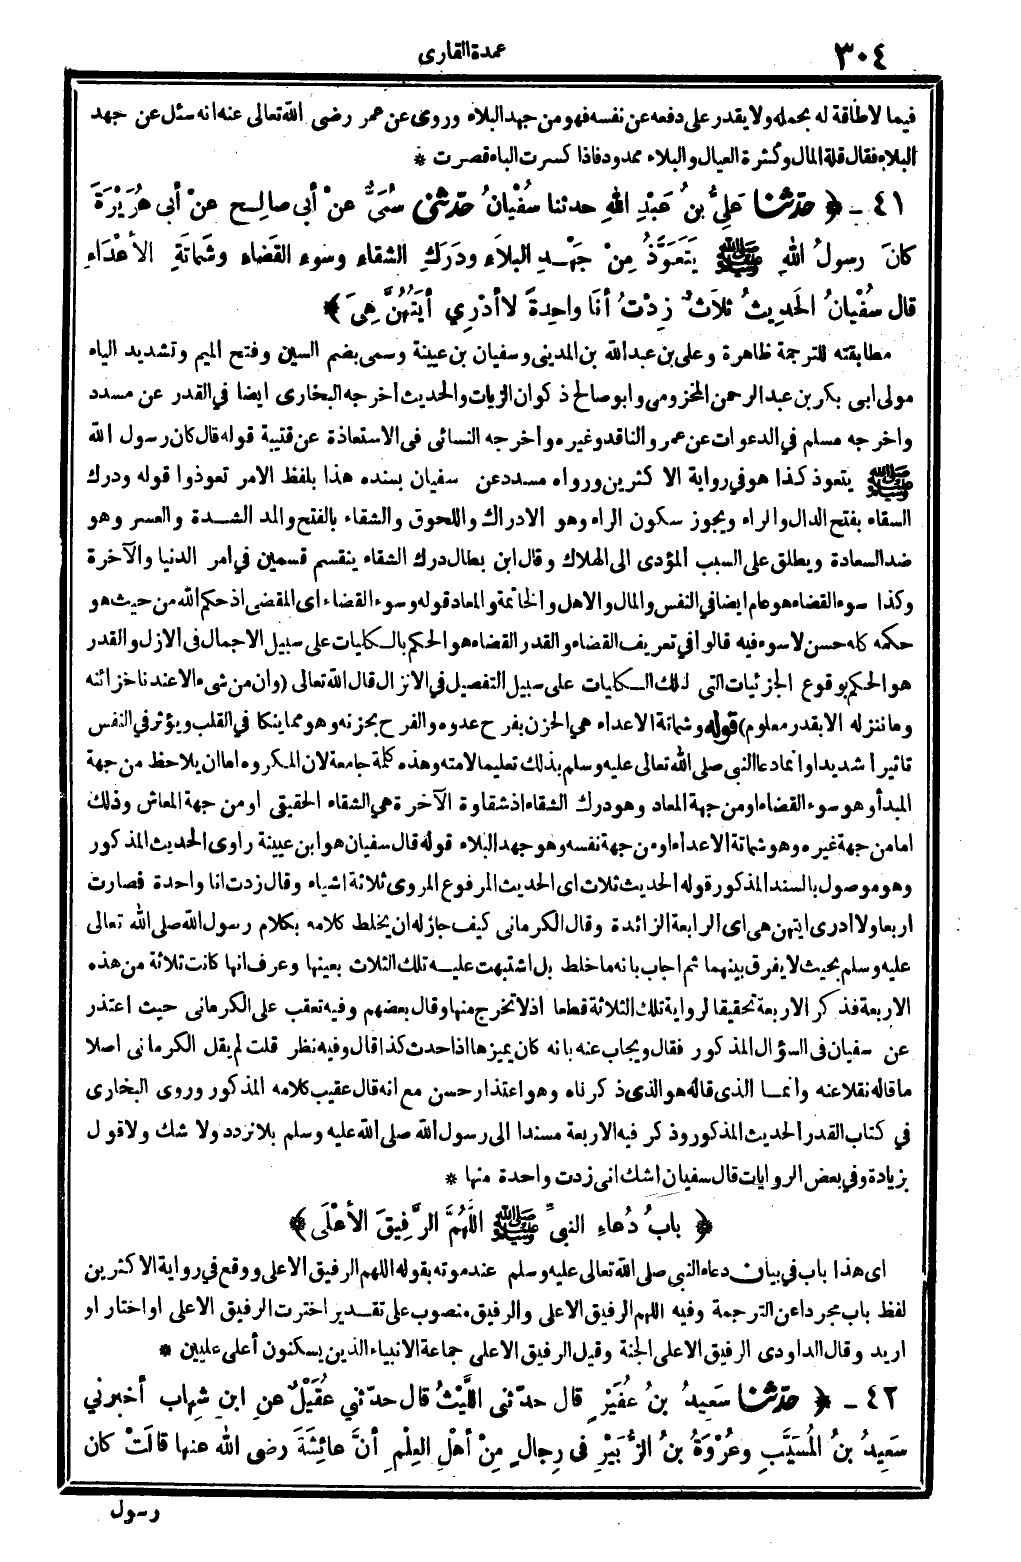 ٣٠٤
عمدة القارى
فيما لا طاقة له بحمله ولا يقدر على دفعه عن نفسه فهو من جهد البلاء وروى عن عمر رضى الله تعالى عنه انه سئل عن جهد
البلاء فقال قلة المال وكثرة العيال والبلاء ممدود فاذا كسرت الباء قصرت *
٤١ - ﴿ حدّثنا عَلِيُّ بنُ عَبْدِ اللهِ حدثنا سُفْيانُ حدّثني سُمَيٌّ عنْ أبى صالِحٍ عنْ أبى هُرَيْرَةَ
كانَ رسولُ اللهِ ﷺ يَتَعَوَّذُ مِنْ جَهْدِ البلاَءِ ودَرَكِ الشقاءِ وسوءِ القَضاءِ وشَماتَةِ الأعْدَاءِ
قال سُفْيانُ الحَدِيثُ ثلاَثٌ زِدْتُ أنا واحِدةً لا أدْرِي أيَّتُهُنَّ هِىَ ﴾
مطابقته للترجمة ظاهرة وعلى بن عبدالله بن المدينى وسفيان بن عيينة وسمى بضم السين وفتح الميم وتشديد الياء
مولى ابى بكر بن عبدالرحمن المخزومى وابو صالح ذكوان الزيات والحديث أخرجه البخارى ايضا في القدر عن مسدد
واخرجه مسلم في الدعوات عن عمرو الناقد وغيره وأخرجه النسائى فى الاستعاذة عن قتيبة قوله قال كان رسول الله
ﷺ يتعوذ كذا هو في رواية الاكثرين ورواه مسدد عن سفيان بسنده هذا بلفظ الامر تعوذوا قوله ودرك
السقاء بفتح الدال والراء ويجوز سكون الراء وهو الادراك واللحوق والشقاء بالفتح والمد الشدة والعسر وهو
ضد السعادة ويطلق على السبب المؤدى الى الهلاك وقال ابن بطال درك الشقاء ينقسم قسمين في امر الدنيا والآخرة
وكذا سوء القضاء هو عام ايضا في النفس والمال والاهل والخاتمة والمعاد قوله وسوء القضاء اى المقضى اذ حكم الله من حيث هو
حكمه كله حسن لا سوء فيه قالوا في تعريف القضاء والقدر القضاء هو الحكم بالكليات على سبيل الاجمال فى الازل والقدر
هو الحكم بوقوع الجزئيات التى لتلك الكليات على سبيل التفصيل في الانزال قال الله تعالى (وان من شىء الا عندنا خزائنه
وما ننزله الا بقدر معلوم) قوله وشماتة الاعداء هي الحزن بفرح عدوه والفرح بحزنه وهو مما ينكا في القلب ويؤثر في النفس
تاثيرا شديدا وانما دعا النبي صلى الله تعالى عليه وسلم بذلك تعليما لامته وهذه كلمة جامعة لان المكروه اما ان يلاحظ من جهة
المبدأ وهو سوء القضاء او من جهة المعاد وهو درك الشقاء اذ شقاوة الآخرة هي الشقاء الحقيقى او من جهة المعاش وذلك
اما من جهة غيره وهو شماتة الاعداء او من جهة نفسه وهو جهد البلاء قوله قال سفيان هو ابن عيينة راوى الحديث المذكور
وهو موصول بالسند المذكور قوله الحديث ثلاث اى الحديث المرفوع المروى ثلاثة اشياء وقال زدت انا واحدة فصارت
اربعا ولا ادرى ايتهن هى اى الرابعة الزائدة وقال الكرمانى كيف جاز له ان يخلط كلامه بكلام رسول الله صلى الله تعالى
عليه وسلم بحيث لا يفرق بينهما ثم اجاب بانه ما خلط بل اشتبهت عليه تلك الثلاث بعينها وعرف انها كانت ثلاثة من هذه
الاربعة فذكر الاربعة تحقيقا لرواية تلك الثلاثة قطعا اذ لا تخرج منها وقال بعضهم وفيه تعقب على الكرمانى حيث اعتذر
عن سفيان فى السؤال المذكور فقال ويجاب عنه بانه كان يميزها اذا حدث كذا قال وفيه نظر قلت لم يقل الكرمانى اصلا
ما قاله نقلا عنه وانما الذى قاله هو الذى ذكرناه وهو اعتذار حسن مع انه قال عقيب كلامه المذكور وروى البخارى
في كتاب القدر الحديث المذكور وذكر فيه الاربعة مسندا الى رسول الله صلى الله عليه وسلم بلا تردد ولا شك ولا قول
بزيادة وفي بعض الروايات قال سفيان اشك انى زدت واحدة منها *
﴿ بابُ دُعاءِ النبيِّ ﷺ اللّٰهُمَّ الرَّفِيقَ الأعْلَى ﴾
اى هذا باب في بيان دعاء النبي صلى الله تعالى عليه وسلم عند موته بقوله اللهم الرفيق الاعلى ووقع في رواية الاكثرين
لفظ باب مجردا عن الترجمة وفيه اللهم الرفيق الاعلى والرفيق منصوب على تقدير اخترت الرفيق الاعلى او اختار او
اريد وقال الداودى الرفيق الاعلى الجنة وقيل الرفيق الاعلى جماعة الانبياء الذين يسكنون أعلى عليين *
٤٢ - ﴿ حدّثنا سَعِيدُ بنُ عُفَيْرٍ قال حدّثنى اللَّيْثُ قال حدّثني عُقَيْلٌ عنِ ابنِ شِهابٍ أخبرني
سَعِيدُ بنُ المُسَيَّبِ وعُرْوَةُ بنُ الزُّبَيْرِ فى رِجالٍ مِنْ أهْلِ العِلْمِ أنَّ عائِشَةَ رضى الله عنها قالَتْ كان
رسول